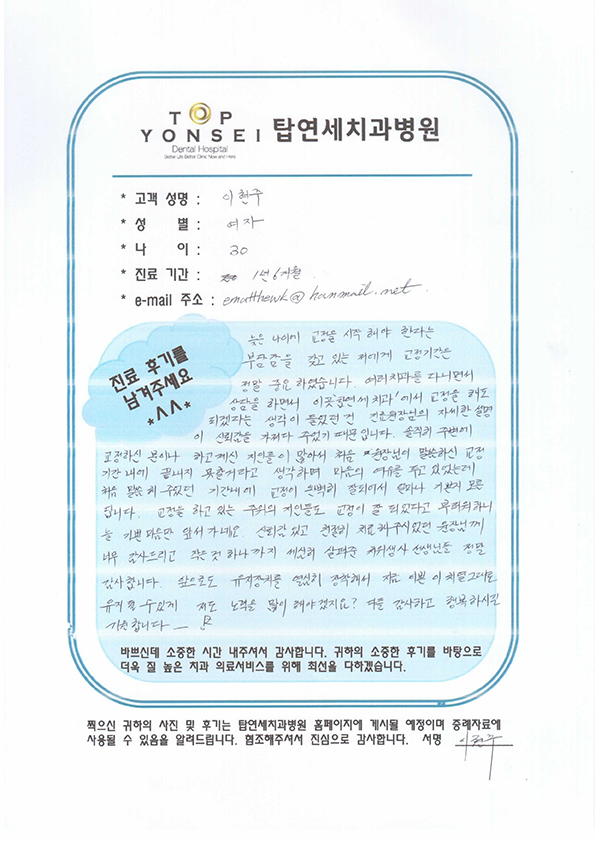 TOP
YONSEI 탑연세치과병원
Dental Hospital
Better Life Better Clinic Now and Here
* 고객 성명 : 이현주
* 성 별 : 여자
* 나 이 : 30
* 진료 기간 : 1년 6개월
* e-mail 주소 : ematthewk@hanmail.net
진료 후기를
남겨주세요
*^^*
늦은 나이에 교정을 시작 해야 한다는
부담감을 갖고 있는 저에게 교정기간은
정말 중요 하였습니다. 여러치과를 다니면서
상담을 하면서 이곳'탑연세 치과'에서 교정을 해도
되겠다는 생각이 들었던 건 원장님의 자세한 설명
이 신뢰감을 가져다 주었기 때문 입니다. 솔직히 주변에
교정하신 분이나 하고계신 지인들이 많아서 처음 원장님이 말씀하신 교정
기간 내에 끝내지 못할거라고 생각하며 마음의 여유를 두고 있었는데
처음 말씀 해 주셨던 기간내에 교정이 완벽히 잘되어서 얼마나 기쁜지 모른
답니다. 교정을 하고 있는 주위의 지인들도 교정이 잘 되었다고 부러워하니
늘 기쁜 마음만 앞서 가네요. 신뢰감 있고 친절히 치료 해주시었던 원장님께
너무 감사드리고 작은것 하나까지 세심히 살펴준 치위생사 선생님들 정말
감사합니다. 앞으로도 유지장치를 열심히 장착해서 지금 이쁜 이 치열 그대로
유지 할 수 있게 저도 노력을 많이 해야겠지요? 다들 감사하고 행복하시길
기원합니다
바쁘신데 소중한 시간 내주셔서 감사합니다. 귀하의 소중한 후기를 바탕으로
더욱 질 높은 치과 의료서비스를 위해 최선을 다하겠습니다.
찍으신 귀하의 사진 및 후기는 탑연세치과병원 홈페이지에 게시될 예정이며 증례자료에
사용될 수 있음을 알려드립니다. 협조해주셔서 진심으로 감사합니다. 서명 이현주